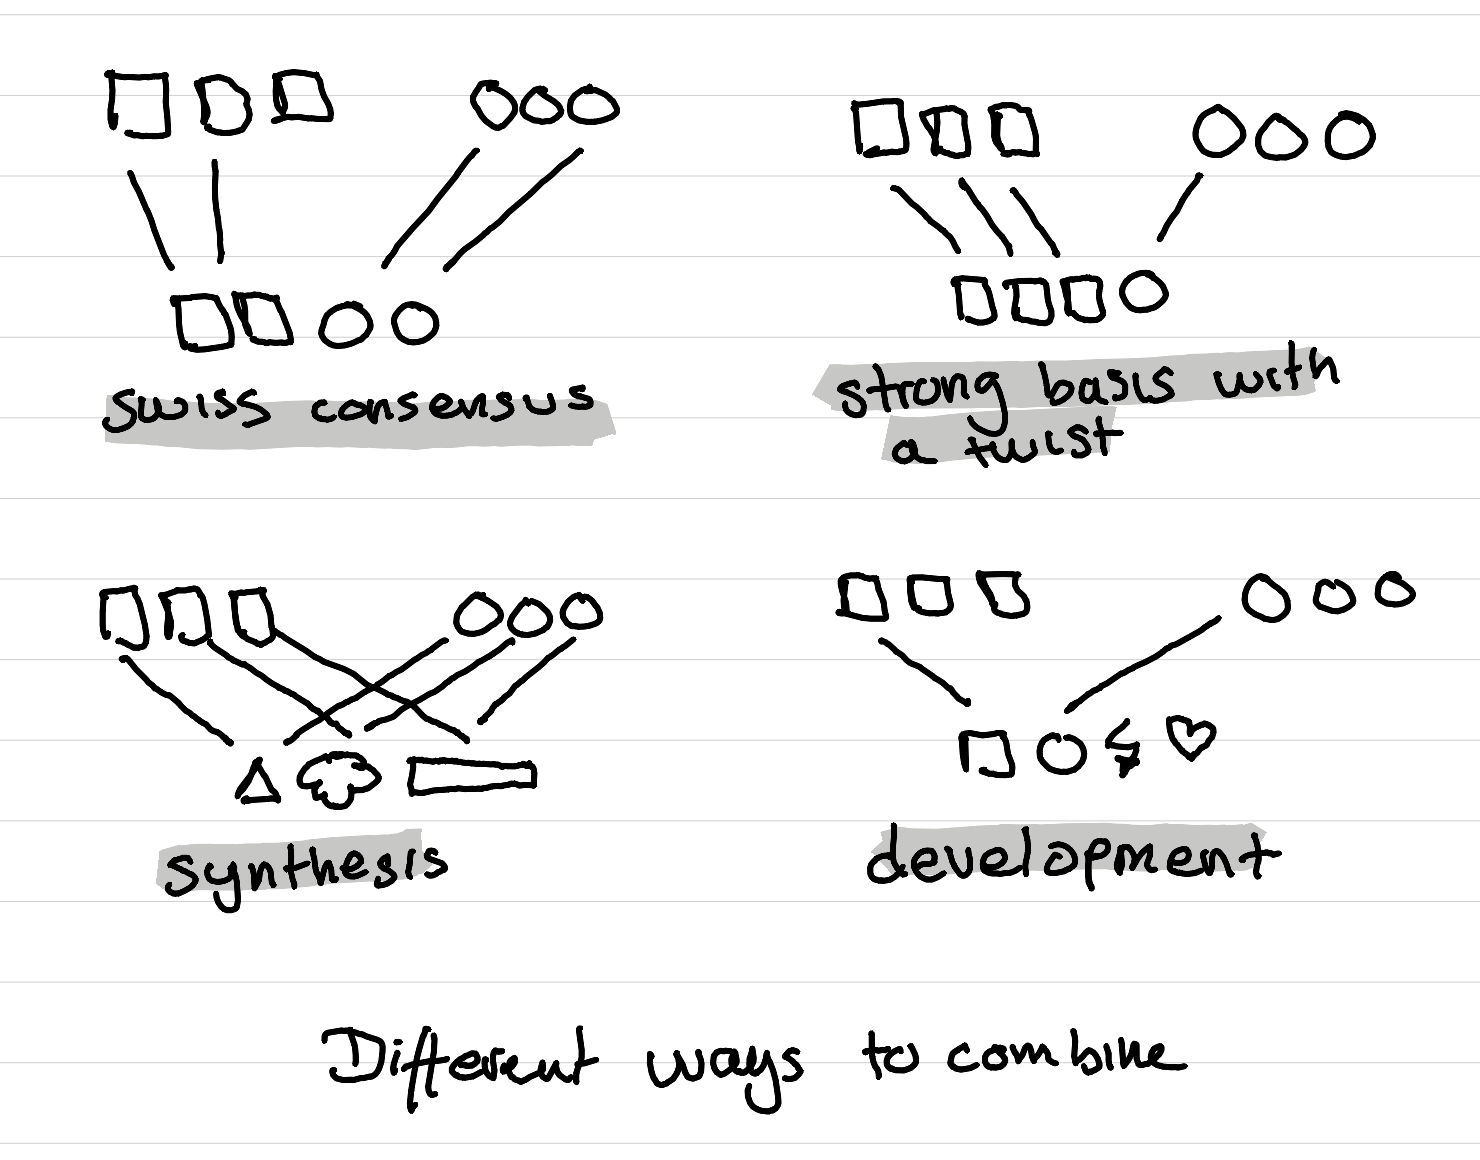 swiss consensus
strong basis with
a twist
synthesis
development
Different ways to combine